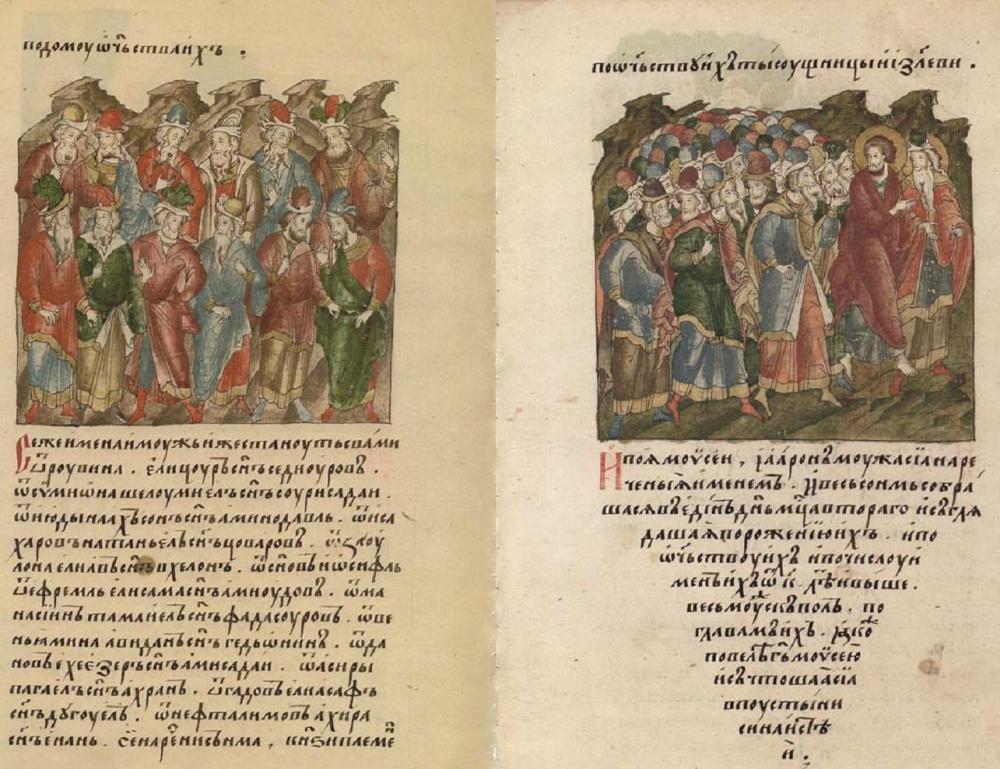 подомоу ѿч҃ьства и́хъ .
Се же имена и моужьи иже стануть с вами
ѿ роувима . є҆лицоуръ сн҃ъ седиоуровъ .
ѿ сумиѡна шелоумиелъ сн҃ъ соурисадаи .
ѿ июды наахъсонъ сн҃ъ аминодавль . ѿ иса
харовъ натанъелъ сн҃ъ цоваровъ . ѿ зау
лона елиавъ сн҃ъ вхелонъ . ѿ сновъ иѡсифль
ѿ ефремль елисама сн҃ъ амиоудовъ . ѿ ма
насиинъ тамлиелъ сн҃ъ фадасоуровъ . ѿ ве
ньямина авиданъ сн҃ъ гедьѡнинъ . ѿ да
новъ ехеезеръ сн҃ъ амисадаи . ѿ асиры
пагаелъ сн҃ъ ахранъ . ѿ гадовъ елиасафъ
сн҃ъ дугоуелъ . ѿ нефталимовъ ахира
сн҃ъ енанъ . се наренисѧ има , кн҃ѕи племе
по ѿч҃ьству и́хъ тысоущницы и҆ изъ леви .
И поя моѵсеи , і ааронъ моужа сіа наре
ченыя именемъ . и весь соньмъ собра
шася въ єдинъ дн҃ь мц҃а втораго и съглѧ
дашая по рожению ихъ . и по
ѿч҃ьству ихъ и по числоу и
менъ ихъ ѿ к҃ . лѣтъ и выше .
весь моуск въ полъ , по
главамъ ихъ . яко
повелѣ гь моѵсею
и съчтоша ас̑ıа
в поустыни
синаистѣ
и .